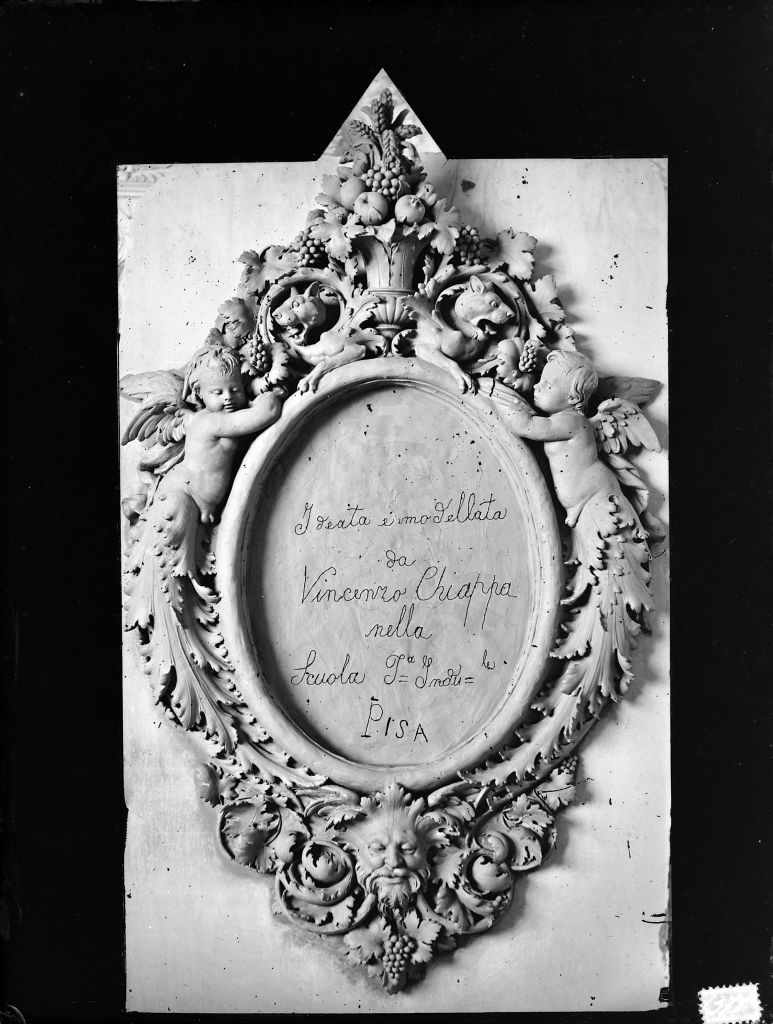 Ideata e modellata
da
Vincenzo Chiappa
nella
Scuola Tª Indu=le
PISA